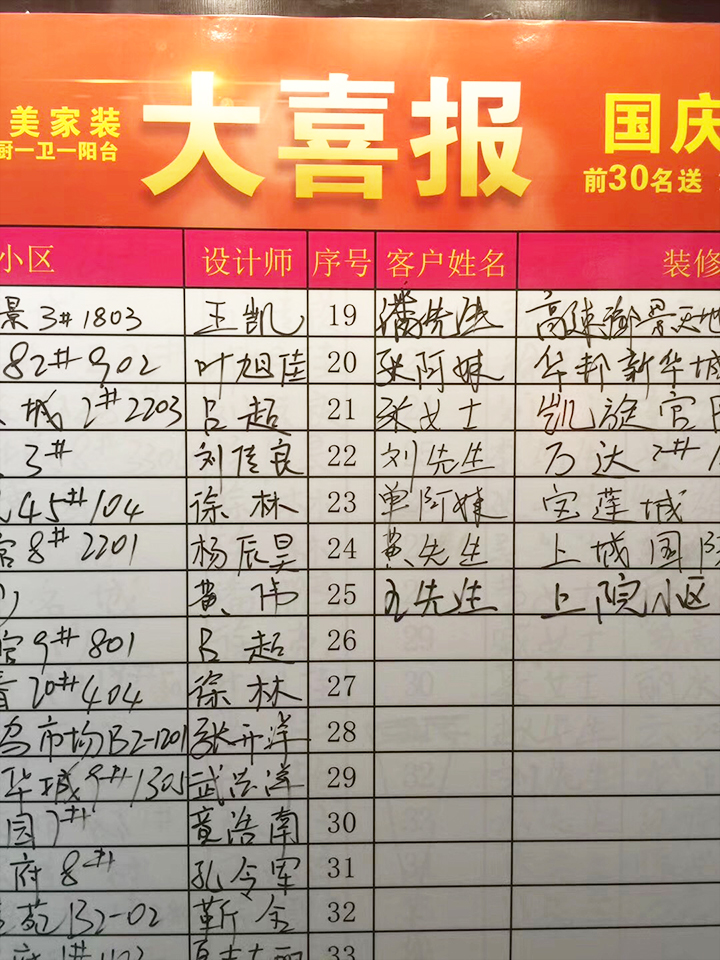 美家装 大喜报 国庆
厨一卫一阳台 前30名送
小区 设计师 序号 客户姓名 装修
景 3# 1803 王凯 19 潘先生 高速御景天地
82# 902 叶旭佳 20 张阿妹 华邦新华城
城 2# 2203 吕超 21 张女士 凯旋官
3# 刘佳良 22 刘先生 万达 2#
45# 104 徐林 23 单阿姨 宝莲城
8# 2201 杨辰昊 24 黄先生 上城国际
黄伟 25 先生 上院小区
9# 801 吕超 26
20# 404 徐林 27
市场B2-1201 张开洋 28
华城 9# 1305 武浩洋 29
园 7# 童浩南 30
府 8# 孔令军 31
苑B2-02 靳全 32
府 1# 33